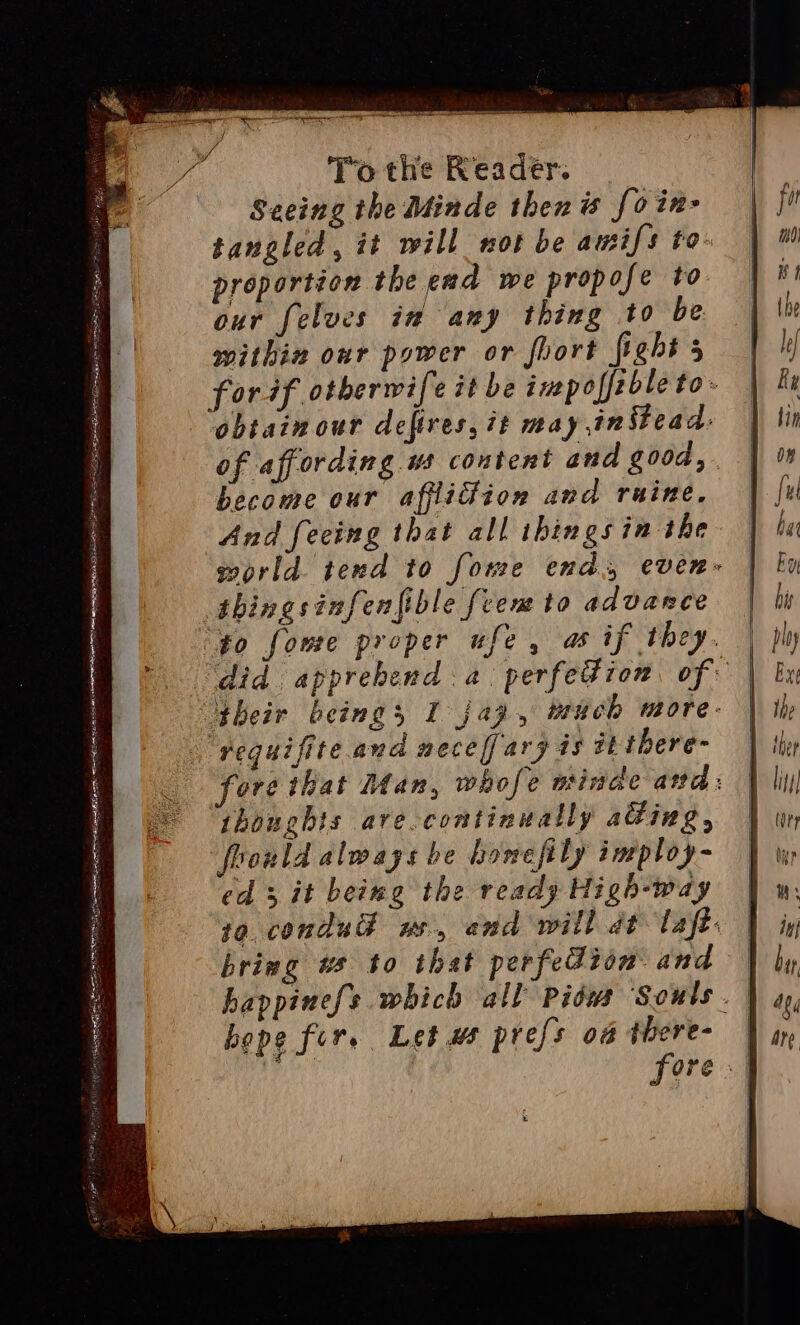 To the Reader.
Seeing the Minde then is ſo in-
tangled, it will not be amiſs to
proportion the end we propoſe to
our ſelves in any thing to be
within our power or ſhort ſight;
for if otherwiſe it be impoſſible to
obtain our deſires, it may inſtead
of affording us content and good,
become our affliction and ruine.
And ſeeing that all things in the
world tend to ſome end; even
things inſenſible ſeem to advance
to ſome proper uſe, as if they
did apprehend a perfection of
their being; I ſay, much more
requiſite and neceſſary is it there-
fore that Man, whoſe minde and
thoughts are continually acting,
ſhould always be honeſtly imploy-
ed; it being the ready High-way
to conduct us, and will at laſt
bring us to that perfection and
happineſs which all Pious Souls
hope for. Let us preſs on there-
fore
for
the